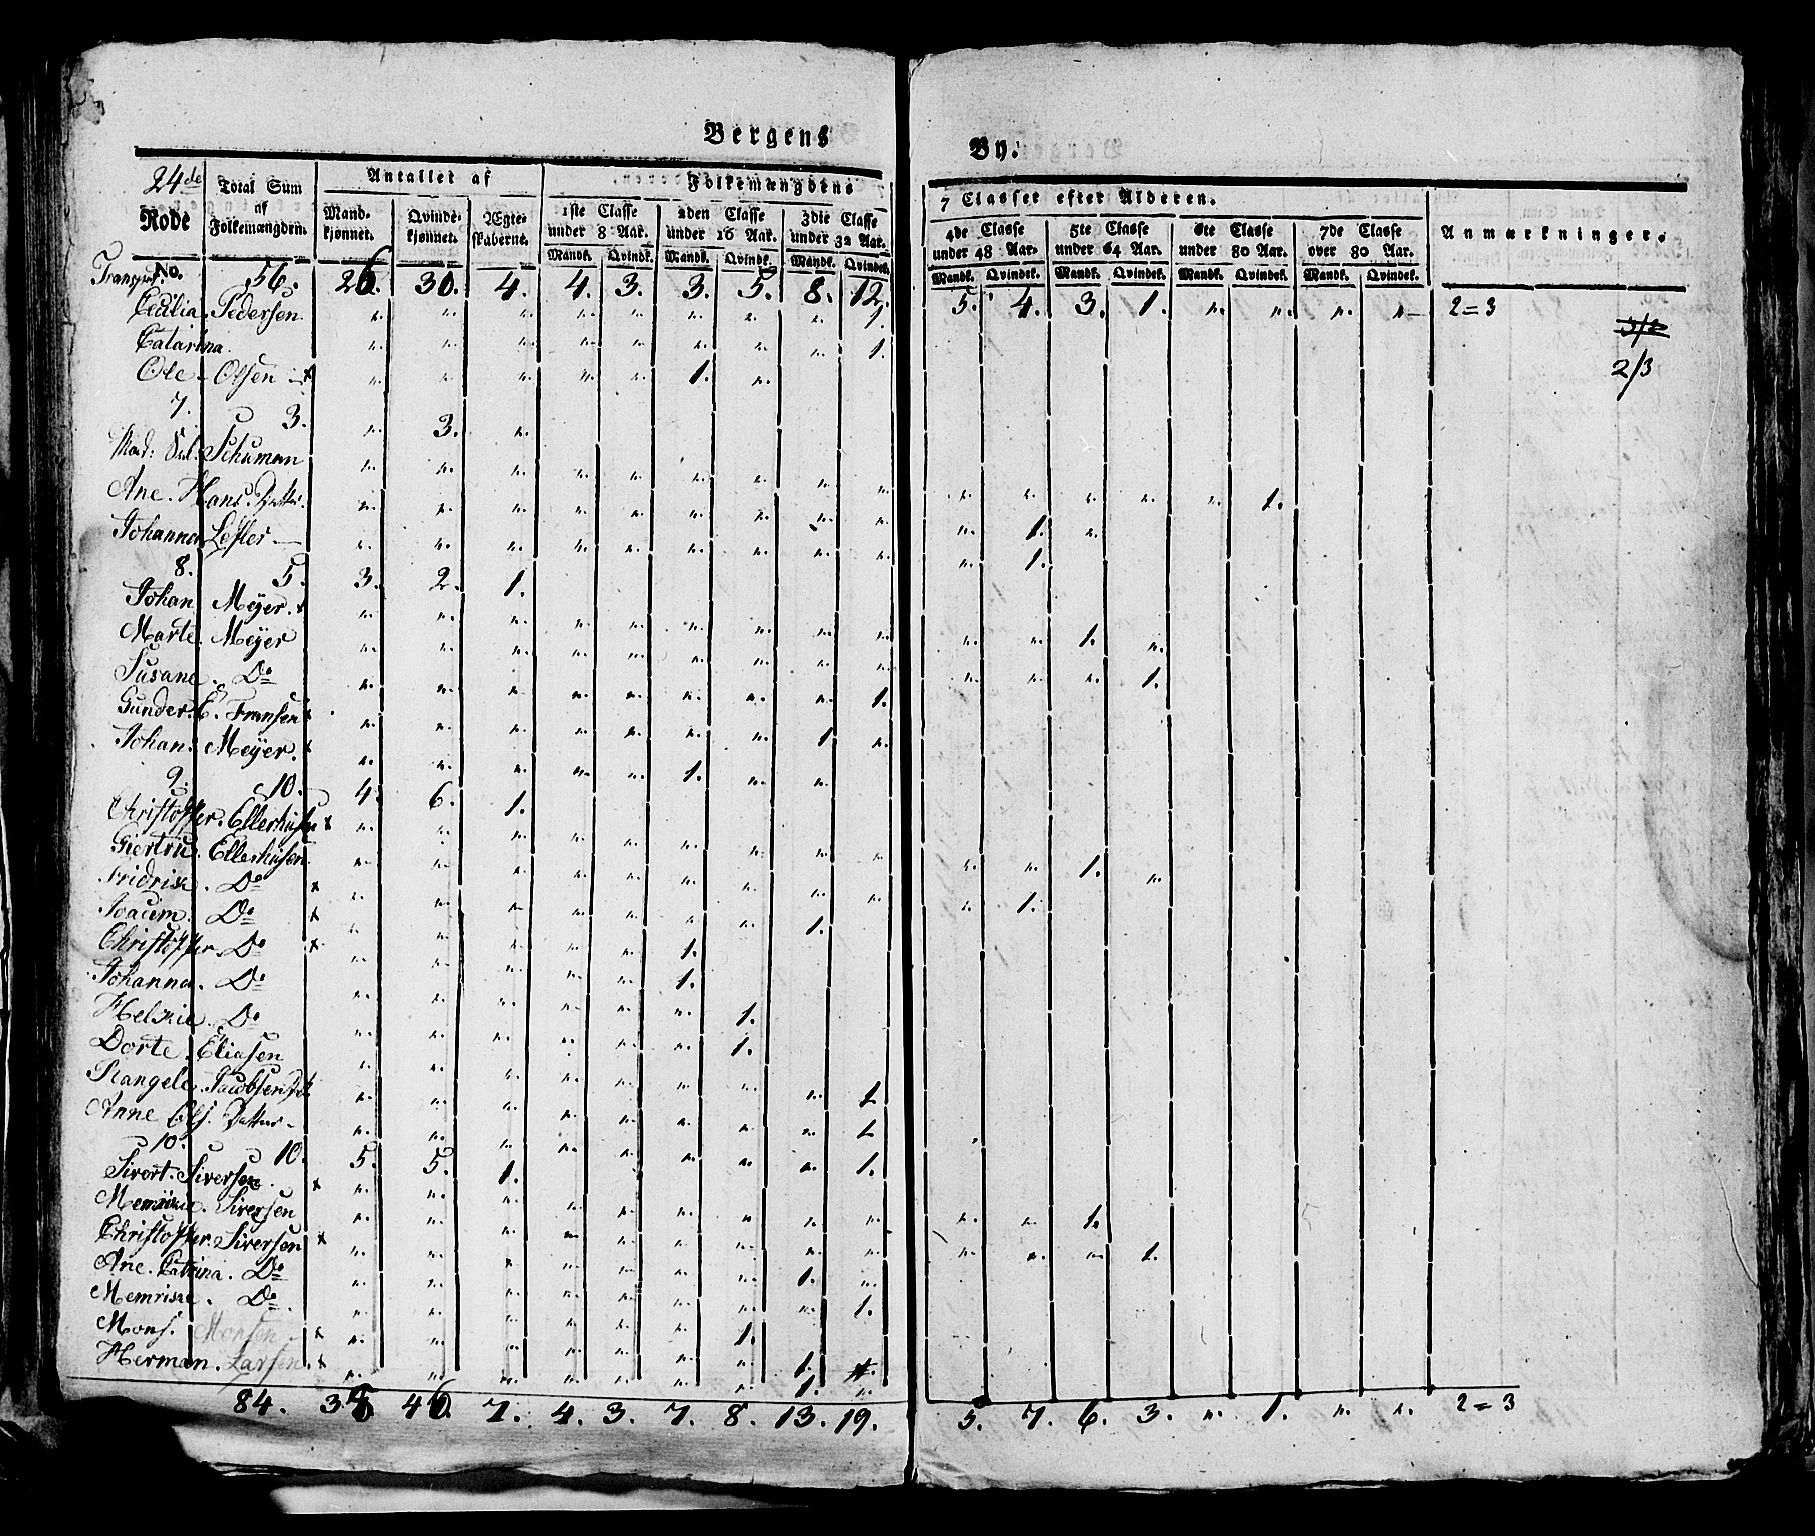 Bergens By.
24de Rode No.
Total Sum af Folkemængden.
Antallet af
Mandkjønnet. Qvindekjønnet. Ægteskaberne.
Folkemængdens 7 Classer efter Alderen.
1ste Classe under 8 Aar. 2den Classe under 16 Aar. 3die Classe under 32 Aar. 4de Classe under 48 Aar. 5te Classe under 64 Aar. 6te Classe under 80 Aar. 7de Classe over 80 Aar.
Mandk. Qvindk. Mandk. Qvindk. Mandk. Qvindek. Mandk. Qvindek. Mandk. Qvindek. Mandk. Qvindek. Mandk. Qvindek.
Anmærkninger.
Transpt. 56. 26. 30. 4. 4. 3. 3. 5. 8. 12. 5. 4. 3. 1. " " " " 2=3
Cecilia. Pedersen. " " " " " " " " 1.
Catarina. " " " " " " " " 1. 2/3
Ole Olsen x " " " " " 1. "
7. 3. " 3. "
Mad: Schuman " " " " " " " " " " " " " " 1.
Ane. Hans Datter. " " " " " " " " " " 1. "
Johanna Lesler " " " " " " " " " " 1.
8. 5. 3. 2. 1.
Johan Meÿer. x " " " " " " " " " " " 1. "
Marte. Meÿer " " " " " " " " " " " " 1.
Susane. Do " " " " " " " " 1.
Gunder. E. Fransen x " " " " " " " 1 "
Johan. Meÿer. x " " " " " 1. " "
9. 10. 4. 6. 1.
Christoffer. Ellerhusen x " " " " " " " " " " " 1. "
Giertru. Ellerhusen. " " " " " " " " " " 1.
Fridrik. Do x " " " " " " " 1.
Joacim. Do x " " " " " 1.
Christoffer. Do x " " " " " 1.
Johanna. Do " " " " " " 1.
Helsie. Do " " " " " " 1.
Dorte. Eliasen " " " " " " " " 1
Rangele. Jacobsen " " " " " " " " 1
Anne Ols. Datter " " " " " " " " 1.
10. 10. 5. 5. 1.
Sivert. Siversen. x " " " " " " " " " " " 1.
Siversen " " " " " " " " " " " " 1.
Christoffer. Siversen x " " " " " " " 1. "
Ane. Catrina. Do " " " " " " " " 1.
Do. " " " " " " 1.
Mons. Monsen x " " " " " " " 1.
Herman. Larsen. x " " " " " " " 1. "
84. 38. 46. 7. 4. 3. 7. 8. 13. 19. 5. 7. 6. 3. " 1. " " 2=3